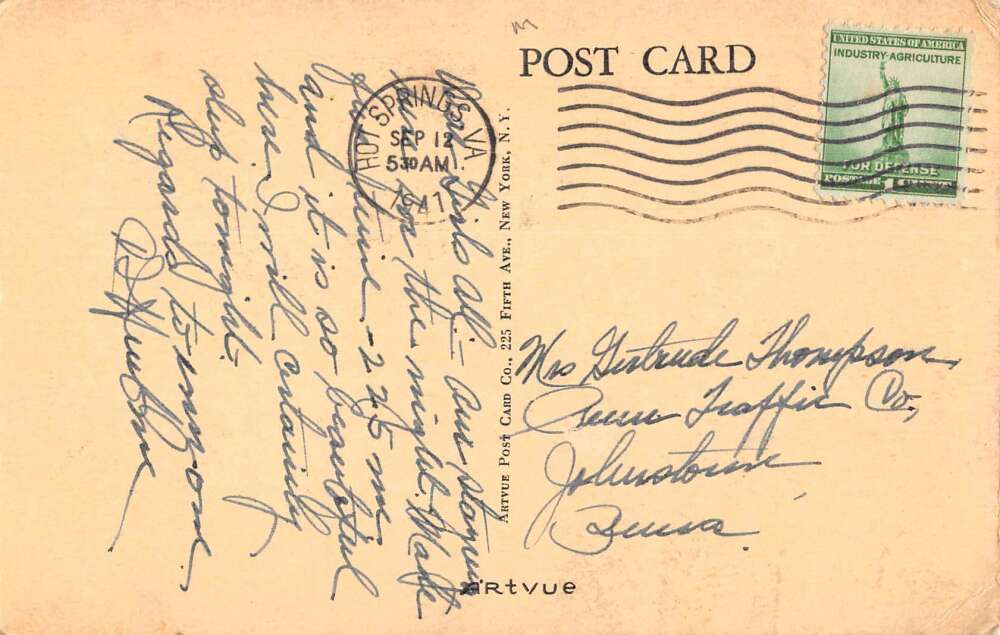 POST CARD
UNITED STATES OF AMERICA
INDUSTRY-AGRICULTURE
FOR DEFENSE
POSTAGE
HOT SPRINGS, VA.
SEP 12
530 AM
1941
Dear Girls all - am staying
here for the night. Made
fine time - 225 mi
and it is so beautiful
here I will certainly
sleep tonight.
Regards to everyone
ARTVUE POST CARD CO., 225 FIFTH AVE., NEW YORK, N. Y.
Mrs Gertrude Thompson
Penn Traffic Co,
Johnstown
Penna.
ARTVUE